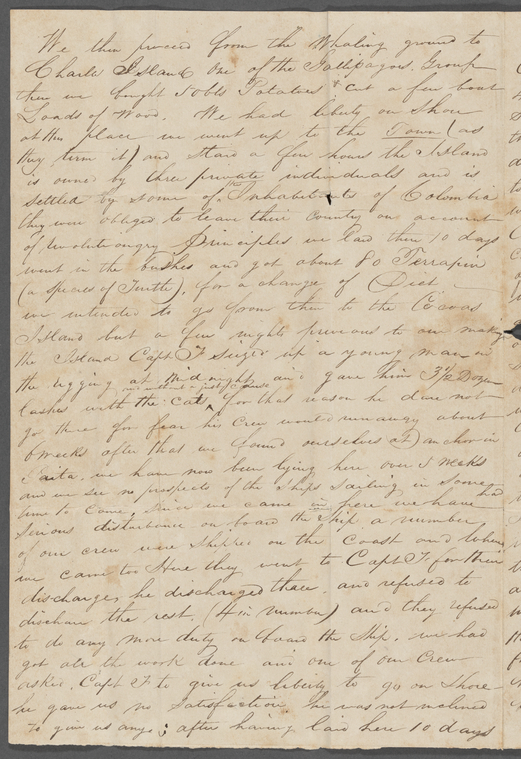 We then proceed from the Whaling ground to
Charles Island One of the Gallipagos Group
then we bought 50 bbls Potatoes & cut a few boat
Loads of Wood. We had liberty on Shore
at this place we went up to the Town (as
they term it) and staid a few hours the Island
is owned by three private individuals and is
settled by some of the Inhabitants of Colombia
they were obliged to leave their Country on account
of Principles we laid there 10 days
went in the bushes and got about 80 Terrapin
(a Species of Turtle), for a change of Diet
we intended to go from then to the
Island but a few nights previous to our making
the Island Capt F Seized up a young man in
the rigging at Midnight and gave him 3½ Dozen
and without a just cause
lashes with the cat, for that reason he dare not
go there for fear his Crew would runaway about
6 weeks after that we found ourselves at anchor in
Paita. we have now been lying here over 5 weeks
and we see no prospects of the Ships sailing in some
time to come, Since we came in here we have had
Serious disturbance on board the Ship a number
of our crew were Shipped on the Coast and when
we came too Here they went to Capt F for their
discharges he discharged three, and refused to
discharge the rest, (4 in number) and they refused
to do any more duty on board the Ship, we had
got all the work done and one of our Crew
asked Capt F to give us liberty to go on Shore
he gave us no Satisfaction, he was not inclined
to give us any; after having laid here 10 days